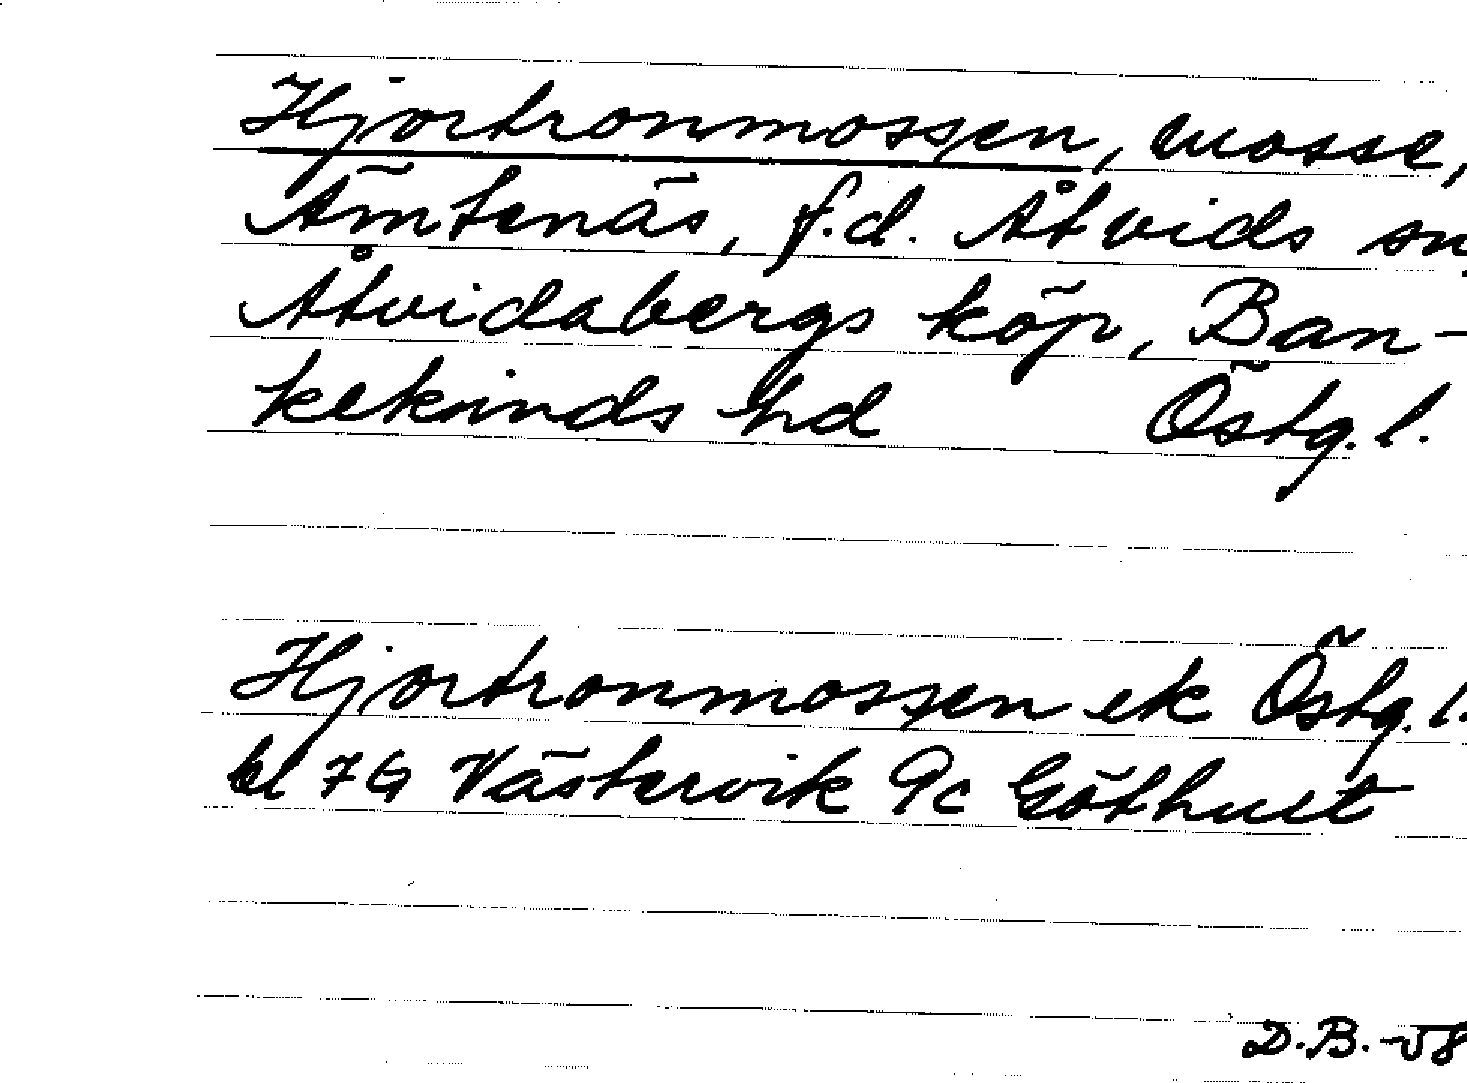 Hjortronmossen, mosse,
Ämtenäs, f.d. Åtvids sn,
Åtvidabergs köp, Ban-
kekinds hd Östg. l.
Hjortronmossen ek Östg. l.
bl 7G Västervik 9c Göthult
D.B.-58